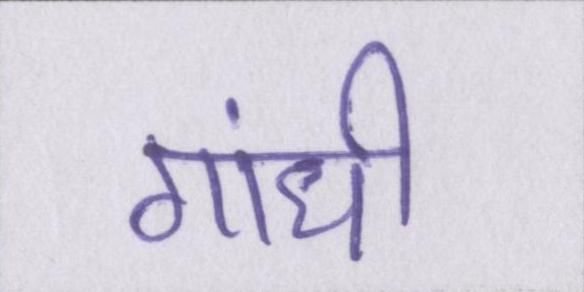 गांधी